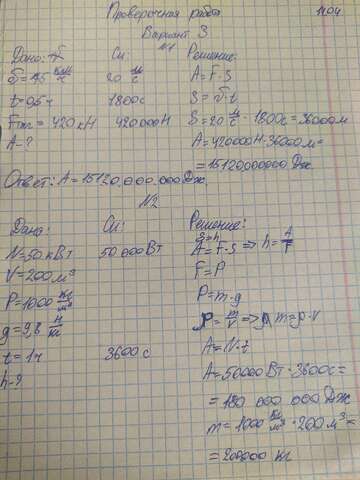 Проверочная работа 11.04
Вариант 3
№1
Дано: Си: Решение:
υ = 75 км/ч 20 м/с A = F · S
t = 0,5ч 1800с S = υ · t
Fтяг = 420 кН 420000Н S = 20 м/с · 1800с = 36000м
A - ? A = 420000Н · 36000м =
= 15120000000 Дж.
Ответ: A = 15120.000.000 Дж.
№2
Дано: Си: Решение:
S = h
N = 50 кВт 50 000 Вт A = F · S => h = A/F
V = 200 м³ F = P
ρ = 1000 кг/м³ P = m · g
g = 9,8 Н/кг ρ = m/V => m = ρ · v
t = 1ч 3600 с A = N · t
h - ? A = 50000 Вт · 3600с =
= 180 000 000 Дж
m = 1000 кг/м³ · 200 м³ =
= 200000 кг